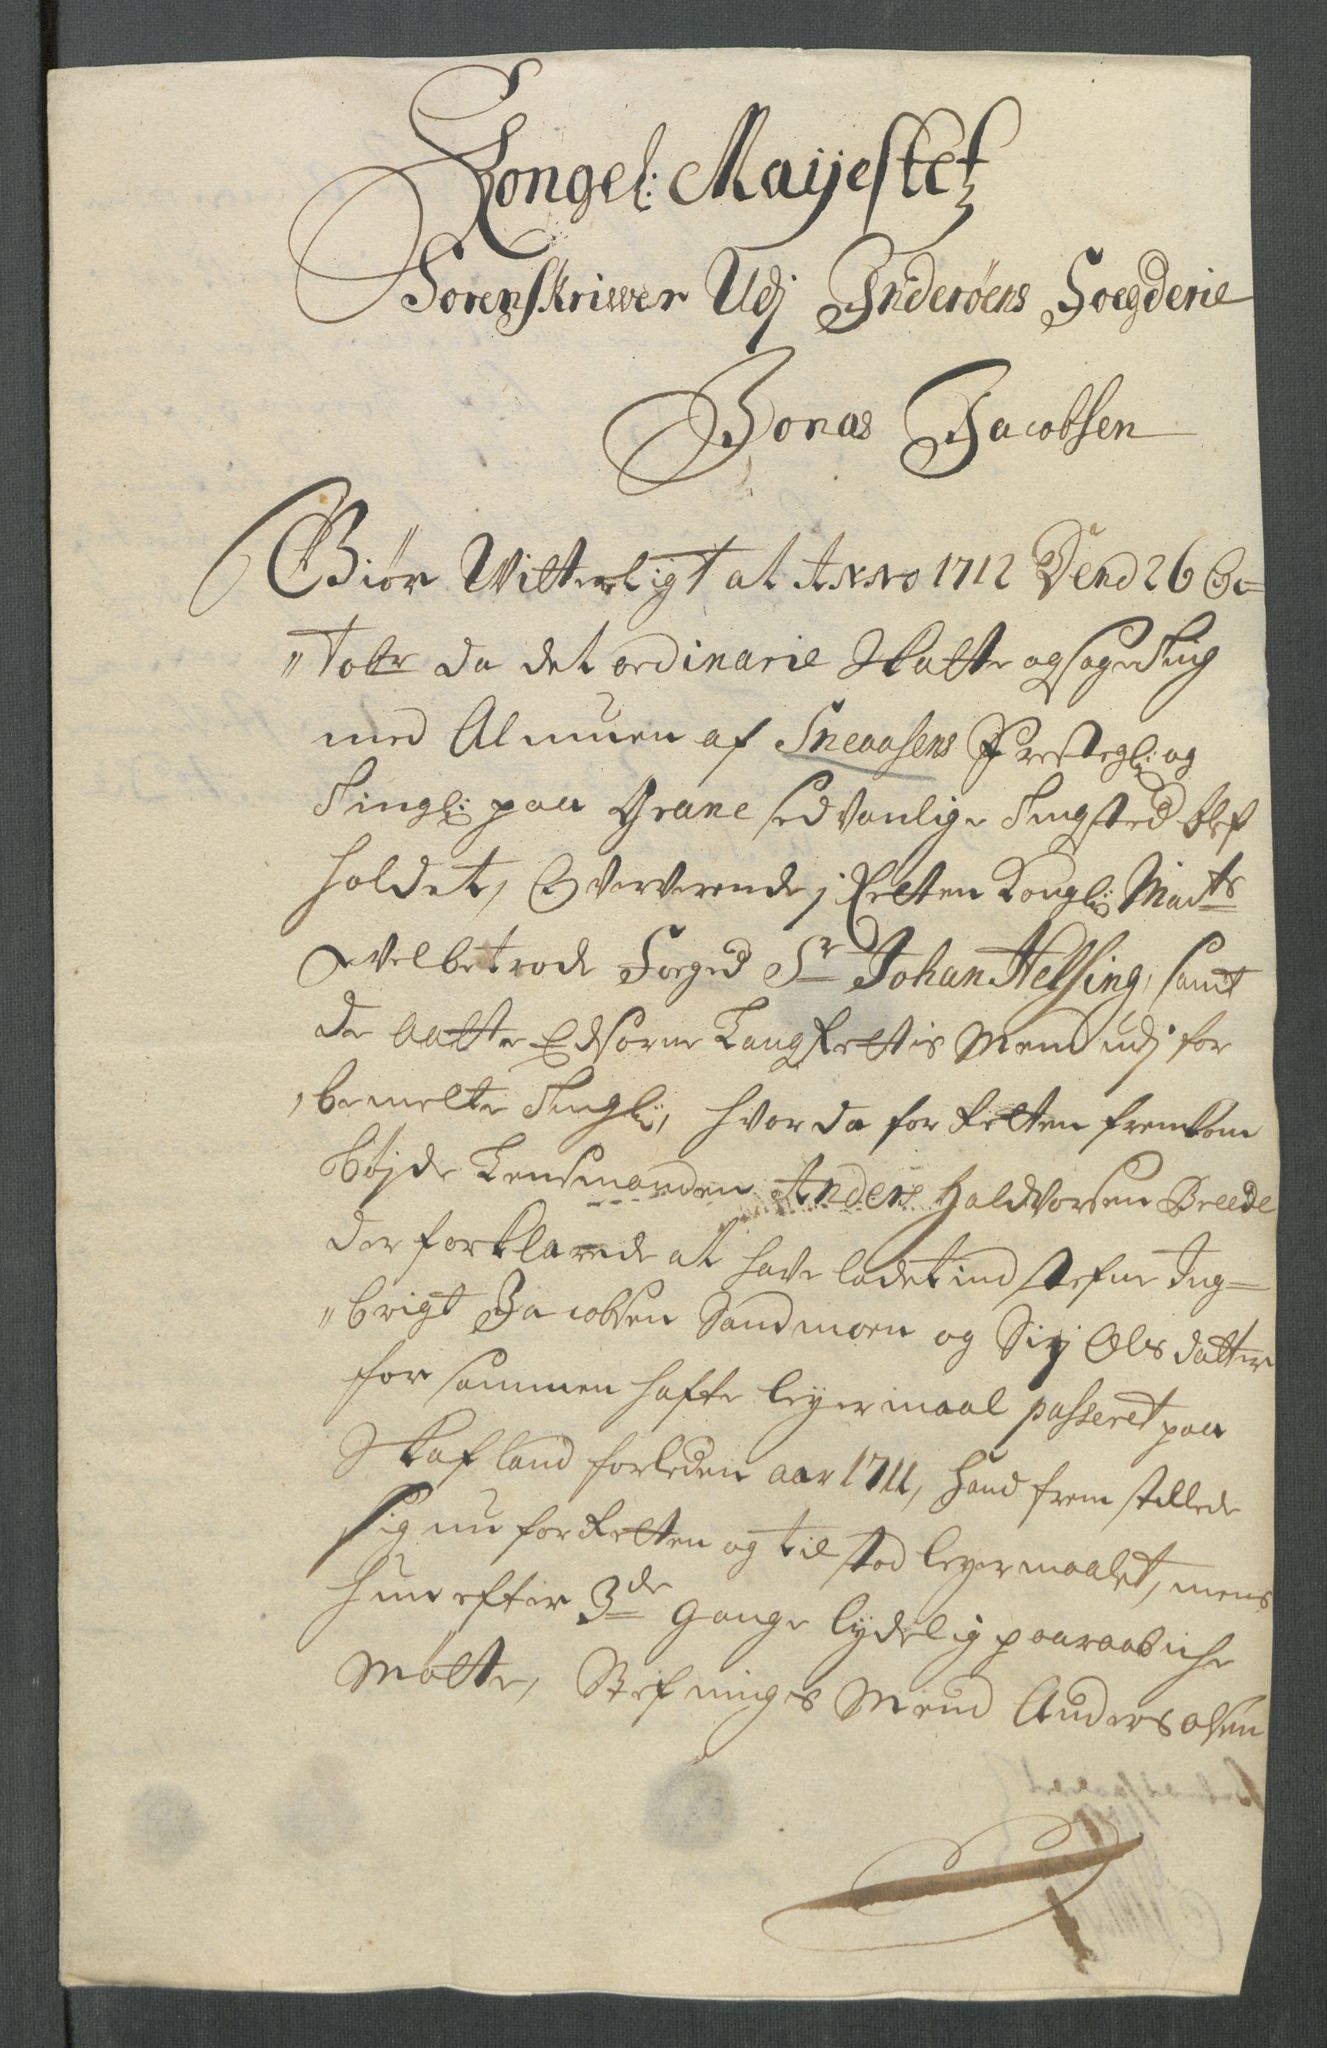 Kongel: Maijestetz
Sorenskriwer Udj Inderöens Foegderie
Jonas Jacobsen
Giör Witterligt at Anno 1712 Dend 26 Oc=
"tobr da det ordinarie Skatte og sage Ting
med Almuen af Sneaasens Prestegl: og
Tingl: paa Grane sedvanlige Tingsted blef
holdet, Oververende j Retten Kongl: Maÿts
velbetrode Foeged Sr Johan Helsing, samt
de aatte Edsorne Laug Rettis Mend udj for
"bemelte Tingl:, hvor da for Retten fremkom
bøjde Lensmanden Anders Haldvorsen Breede
der forklarede at have ladet ind stefne Ing=
"brigt Jacobsen Sandmoen og Sirj Olsdatter
for sammen hafte leyermaal passeret paa
Skafland forleden aar 1711, Hand frem stillede
sig nu for Retten og til stod leyermaalet, mens
hun efter 3de gange lydelig paaraab iche
Mötte, Stefnings Mend Anders Olsen